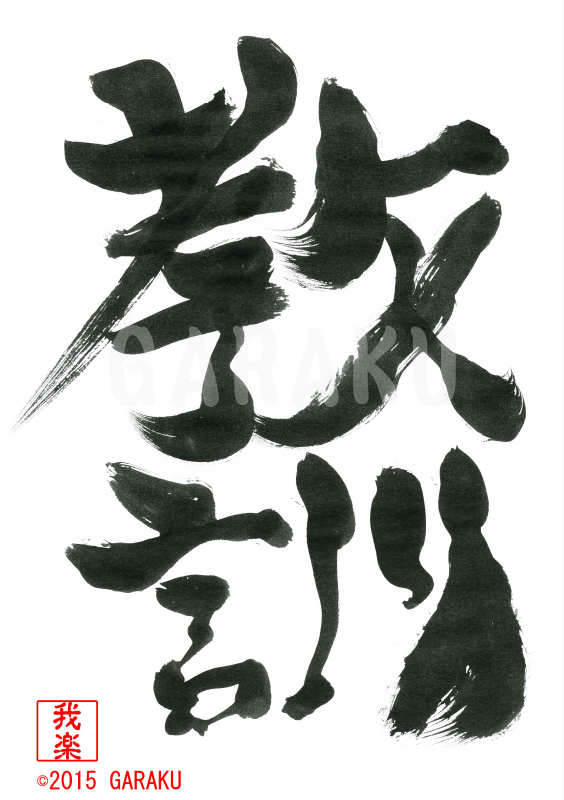 教
訓
GARAKU
我楽
©2015 GARAKU